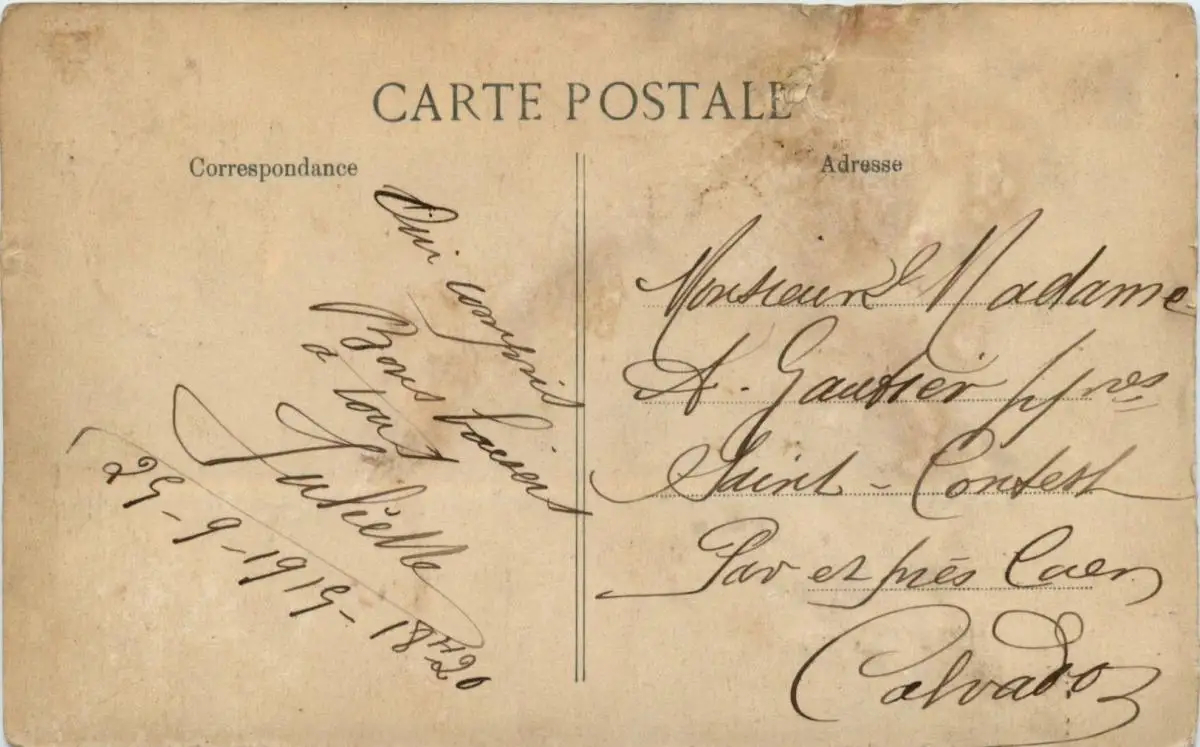 CARTE POSTALE
Correspondance
Adresse
Oui compris
Bons baisers
à tous
Juliette
29-9-1919-18H20
Monsieur & Madame
A. Gautier
Saint-Contest
Par et près Caen
Calvados